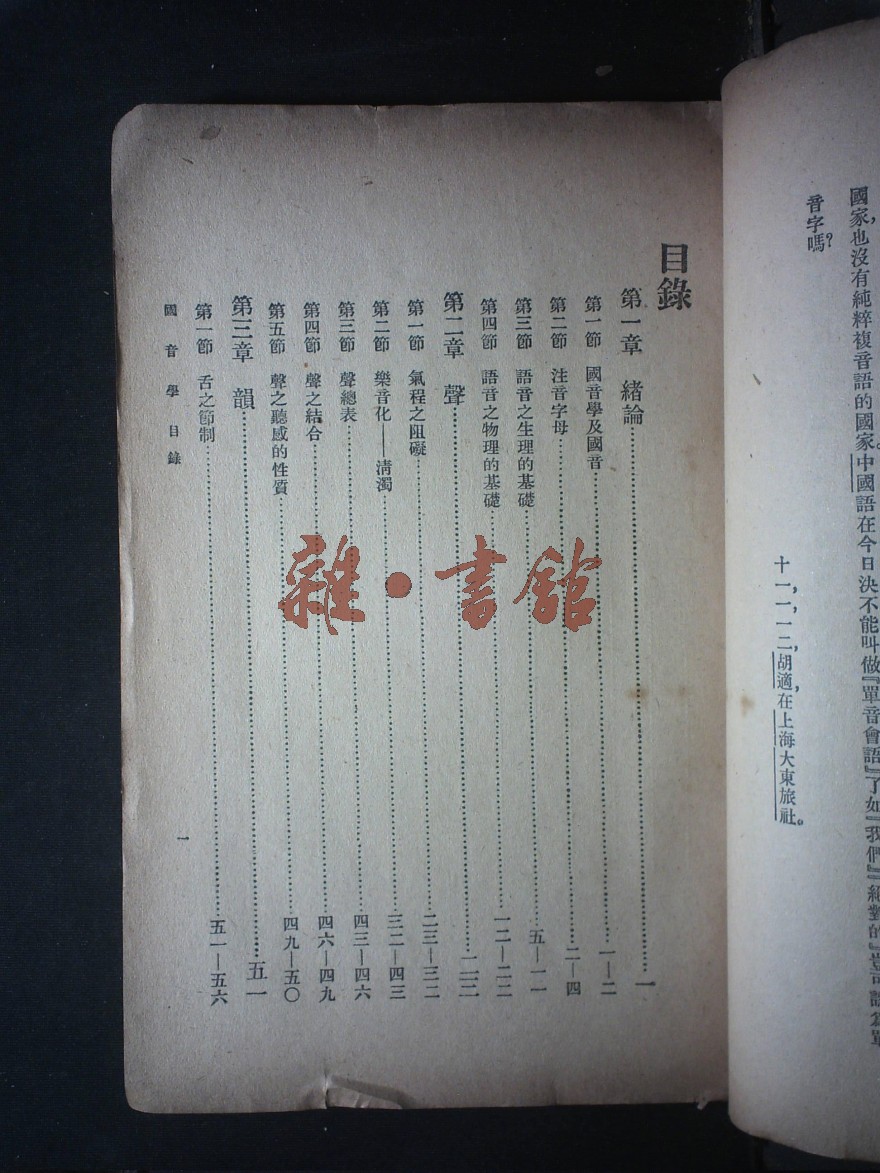 國家,也沒有純粹複音語的國家。中國語在今日決不能叫做『單音會語』了如『我們』『絕對的』豈可
音字嗎?
十一,一,一二,胡適在上海大東旅社。
目錄
第一章 緒論……一
第一節 國音學及國音……一—二
第二節 注音字母……二—四
第三節 語音之生理的基礎……五—一一
第四節 語音之物理的基礎……一二—二二
第二章 聲……二三
第一節 氣程之阻礙……二三—三二
第二節 樂音化——清濁……三二—四三
第三節 聲總表……四三—四六
第四節 聲之結合……四六—四九
第五節 聲之聽感的性質……四九—五〇
第三章 韻……五一
第一節 舌之節制……五一—五六
國音學 目錄
一
雜·書館